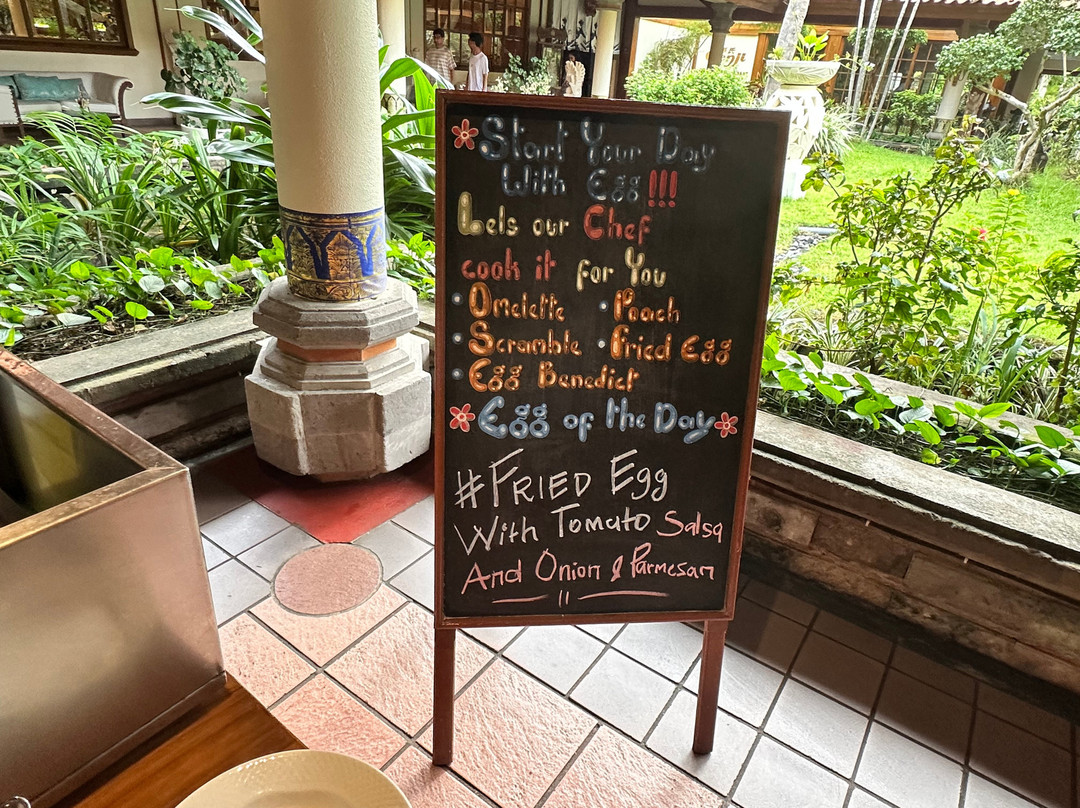 Start Your Day
With Egg!!!
Lets our Chef
cook it for You
• Omelette • Poach
• Scramble • Fried Egg
• Egg Benedict
Egg of the Day
#FRIED Egg
With Tomato Salsa
And Onion & Parmesan